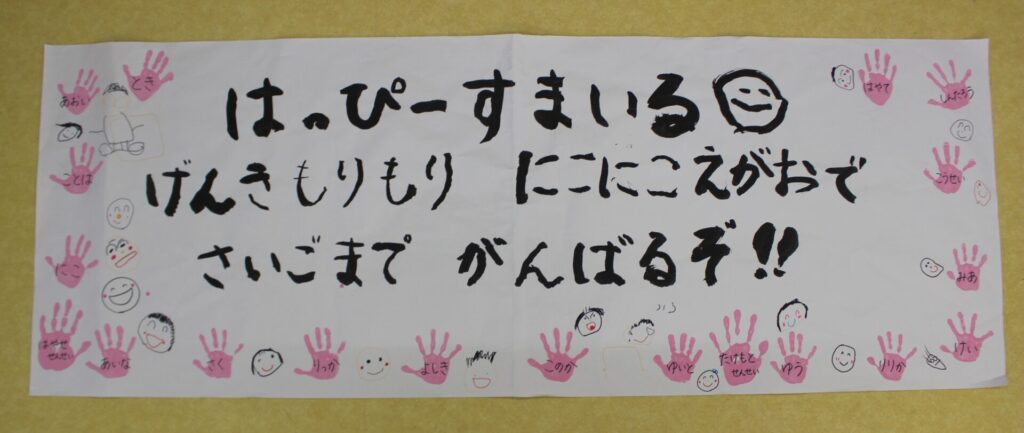 はっぴーすまいる
げんきもりもり　にこにこえがおで
さいごまで　がんばるぞ!!
とき
あおい
ことは
にこ
はやせ
せんせい
あいな
さく
りっか
よしき
このか
ゆいと
たけもと
せんせい
ゆう
りりか
けい
みあ
こうせい
しんたろう
はやて